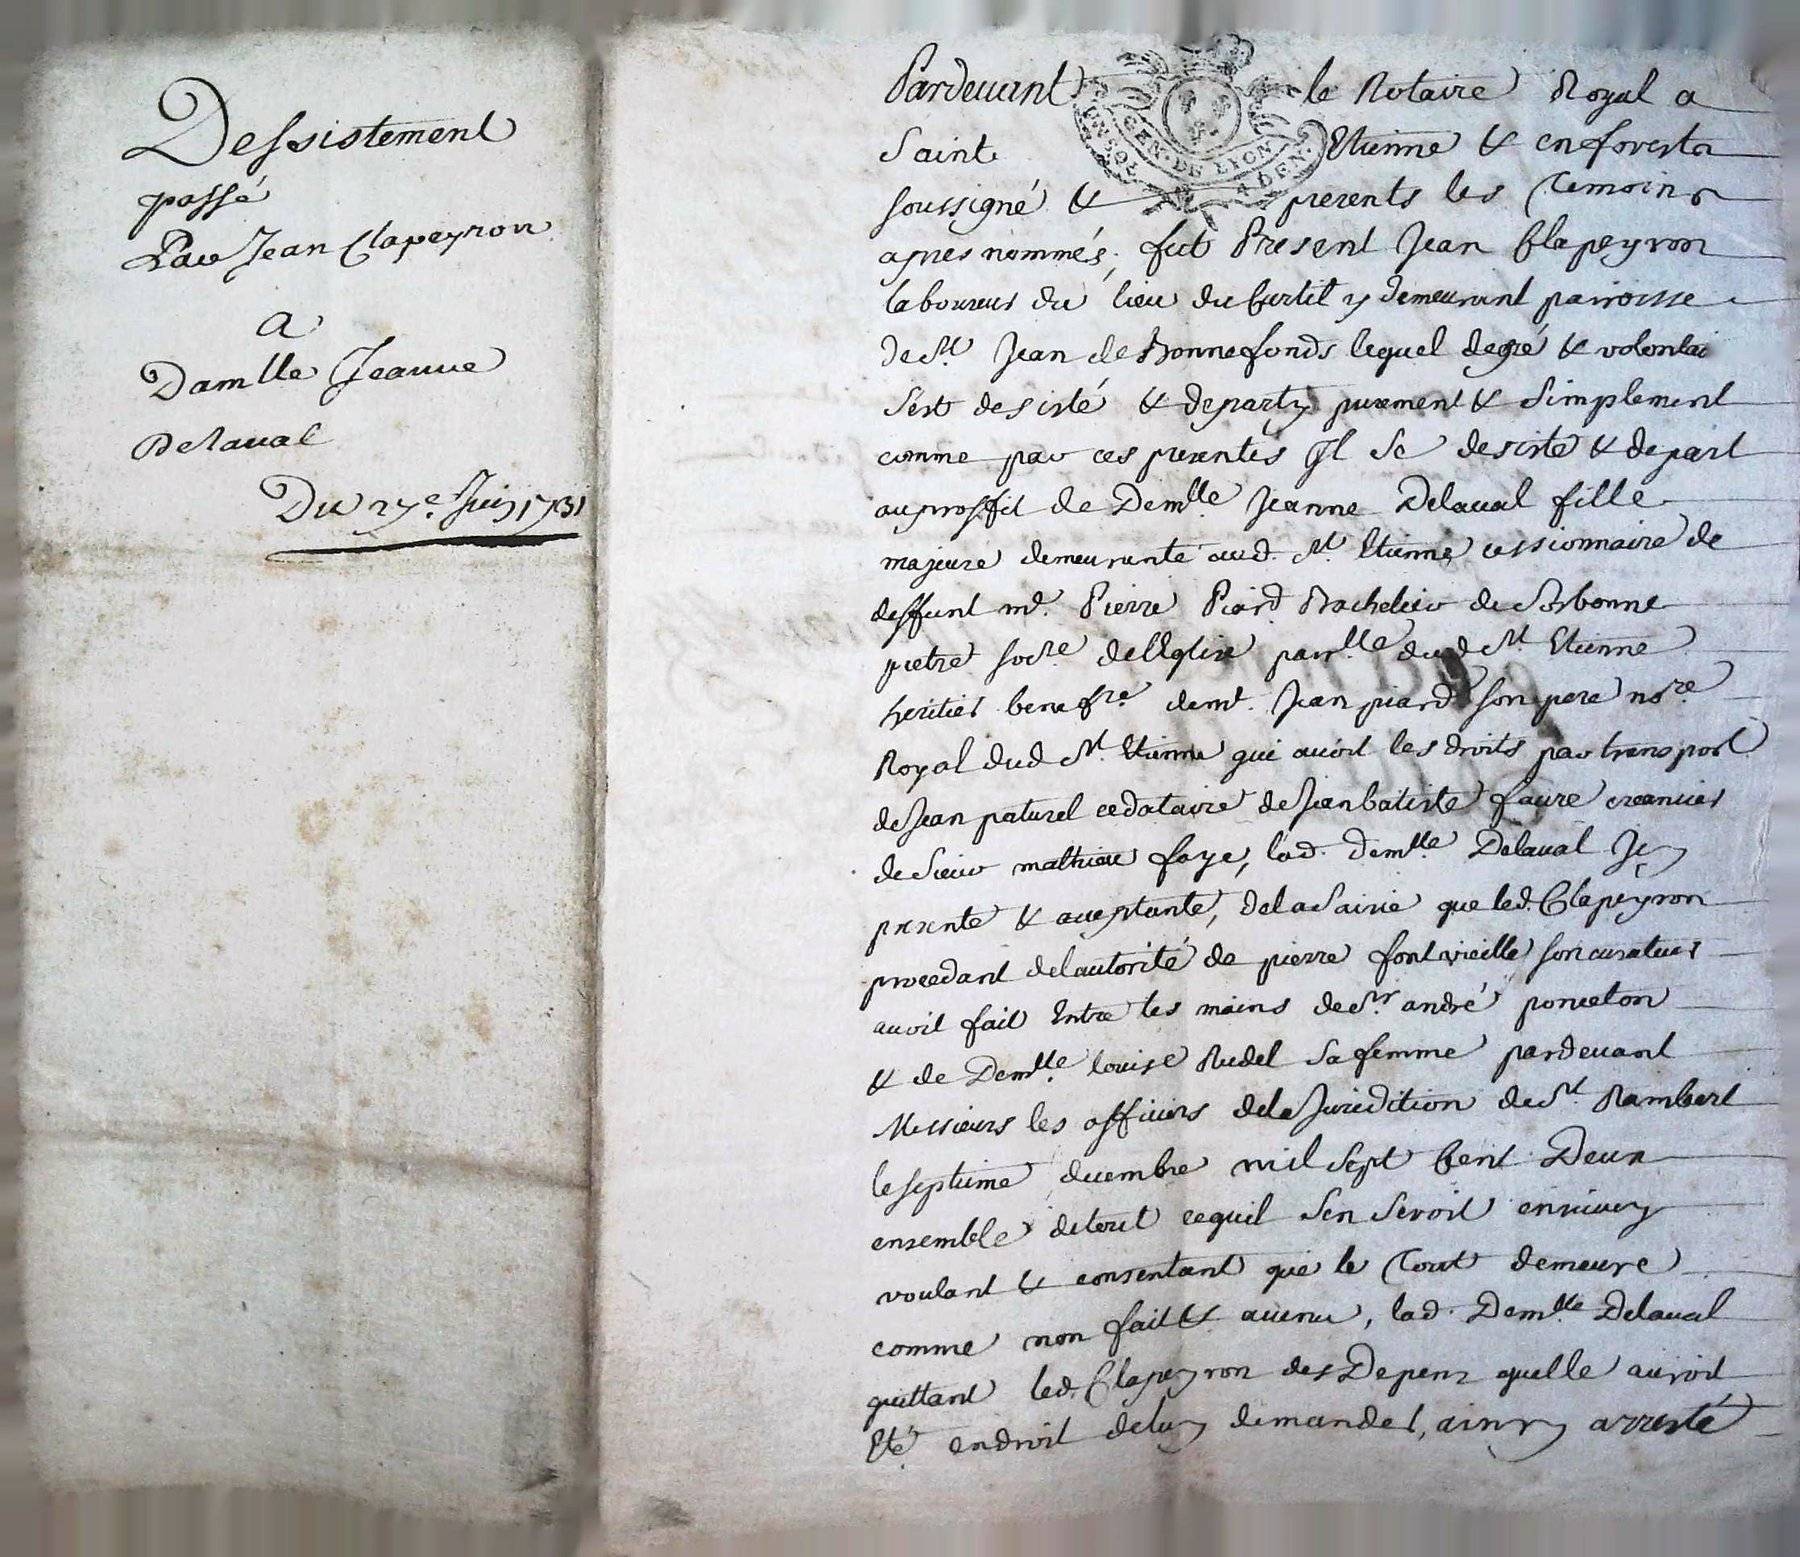 Dessistement
passé
Par Jean Clapeyron
a
Damlle Jeanne
Delaval
Du 27e. Juin 1731
Pardevant le Notaire Royal a
Saint Etienne & en forestz
soussigné & presents les temoins
apres nommés, fut Present Jean Clapeyron
laboureur du lieu du Curtil y demeurant parroisse
de St Jean de Bonnefonds lequel de gré & volonté
sest desisté & departy purement & simplement
comme par ces presentes Il se desiste & depart
au proffit de Demlle Jeanne Delaval fille
majeure demeurante aud. St Etienne, cessionnaire de
deffunt mr. Pierre Piard Bachelier de Sorbonne
pretre socre. de lEglise parrlle dud St Etienne
heritier benefre. de mr. Jean piard son pere nore
Royal dud St. Etienne qui avoit les droits par transport
de Jean paturel cedataire de Jean batiste faure creancier
de Sieur mathieu faye, lad. demlle Delaval Icy
presente & acceptante, de la Saisie que led. Clapeyron
procedant de lautorité de pierre fontvieille son curateur
avoit fait Entre les mains de Sr. andré ponceton
& de Demlle louise Rudel sa femme pardevant
Messieurs les officiers de la Juridition de St Rambert
le septieme decembre mil sept Cent Deux
ensemble de tout ce quil sen seroit ensuivy
voulant & consentant que le tout demeure
comme non fait & avenu, lad. Demlle Delaval
quittant led. Clapeyron des Depens quelle auroit
Eté en droit de luy demander, ainsy arresté
GEN. DE LYON